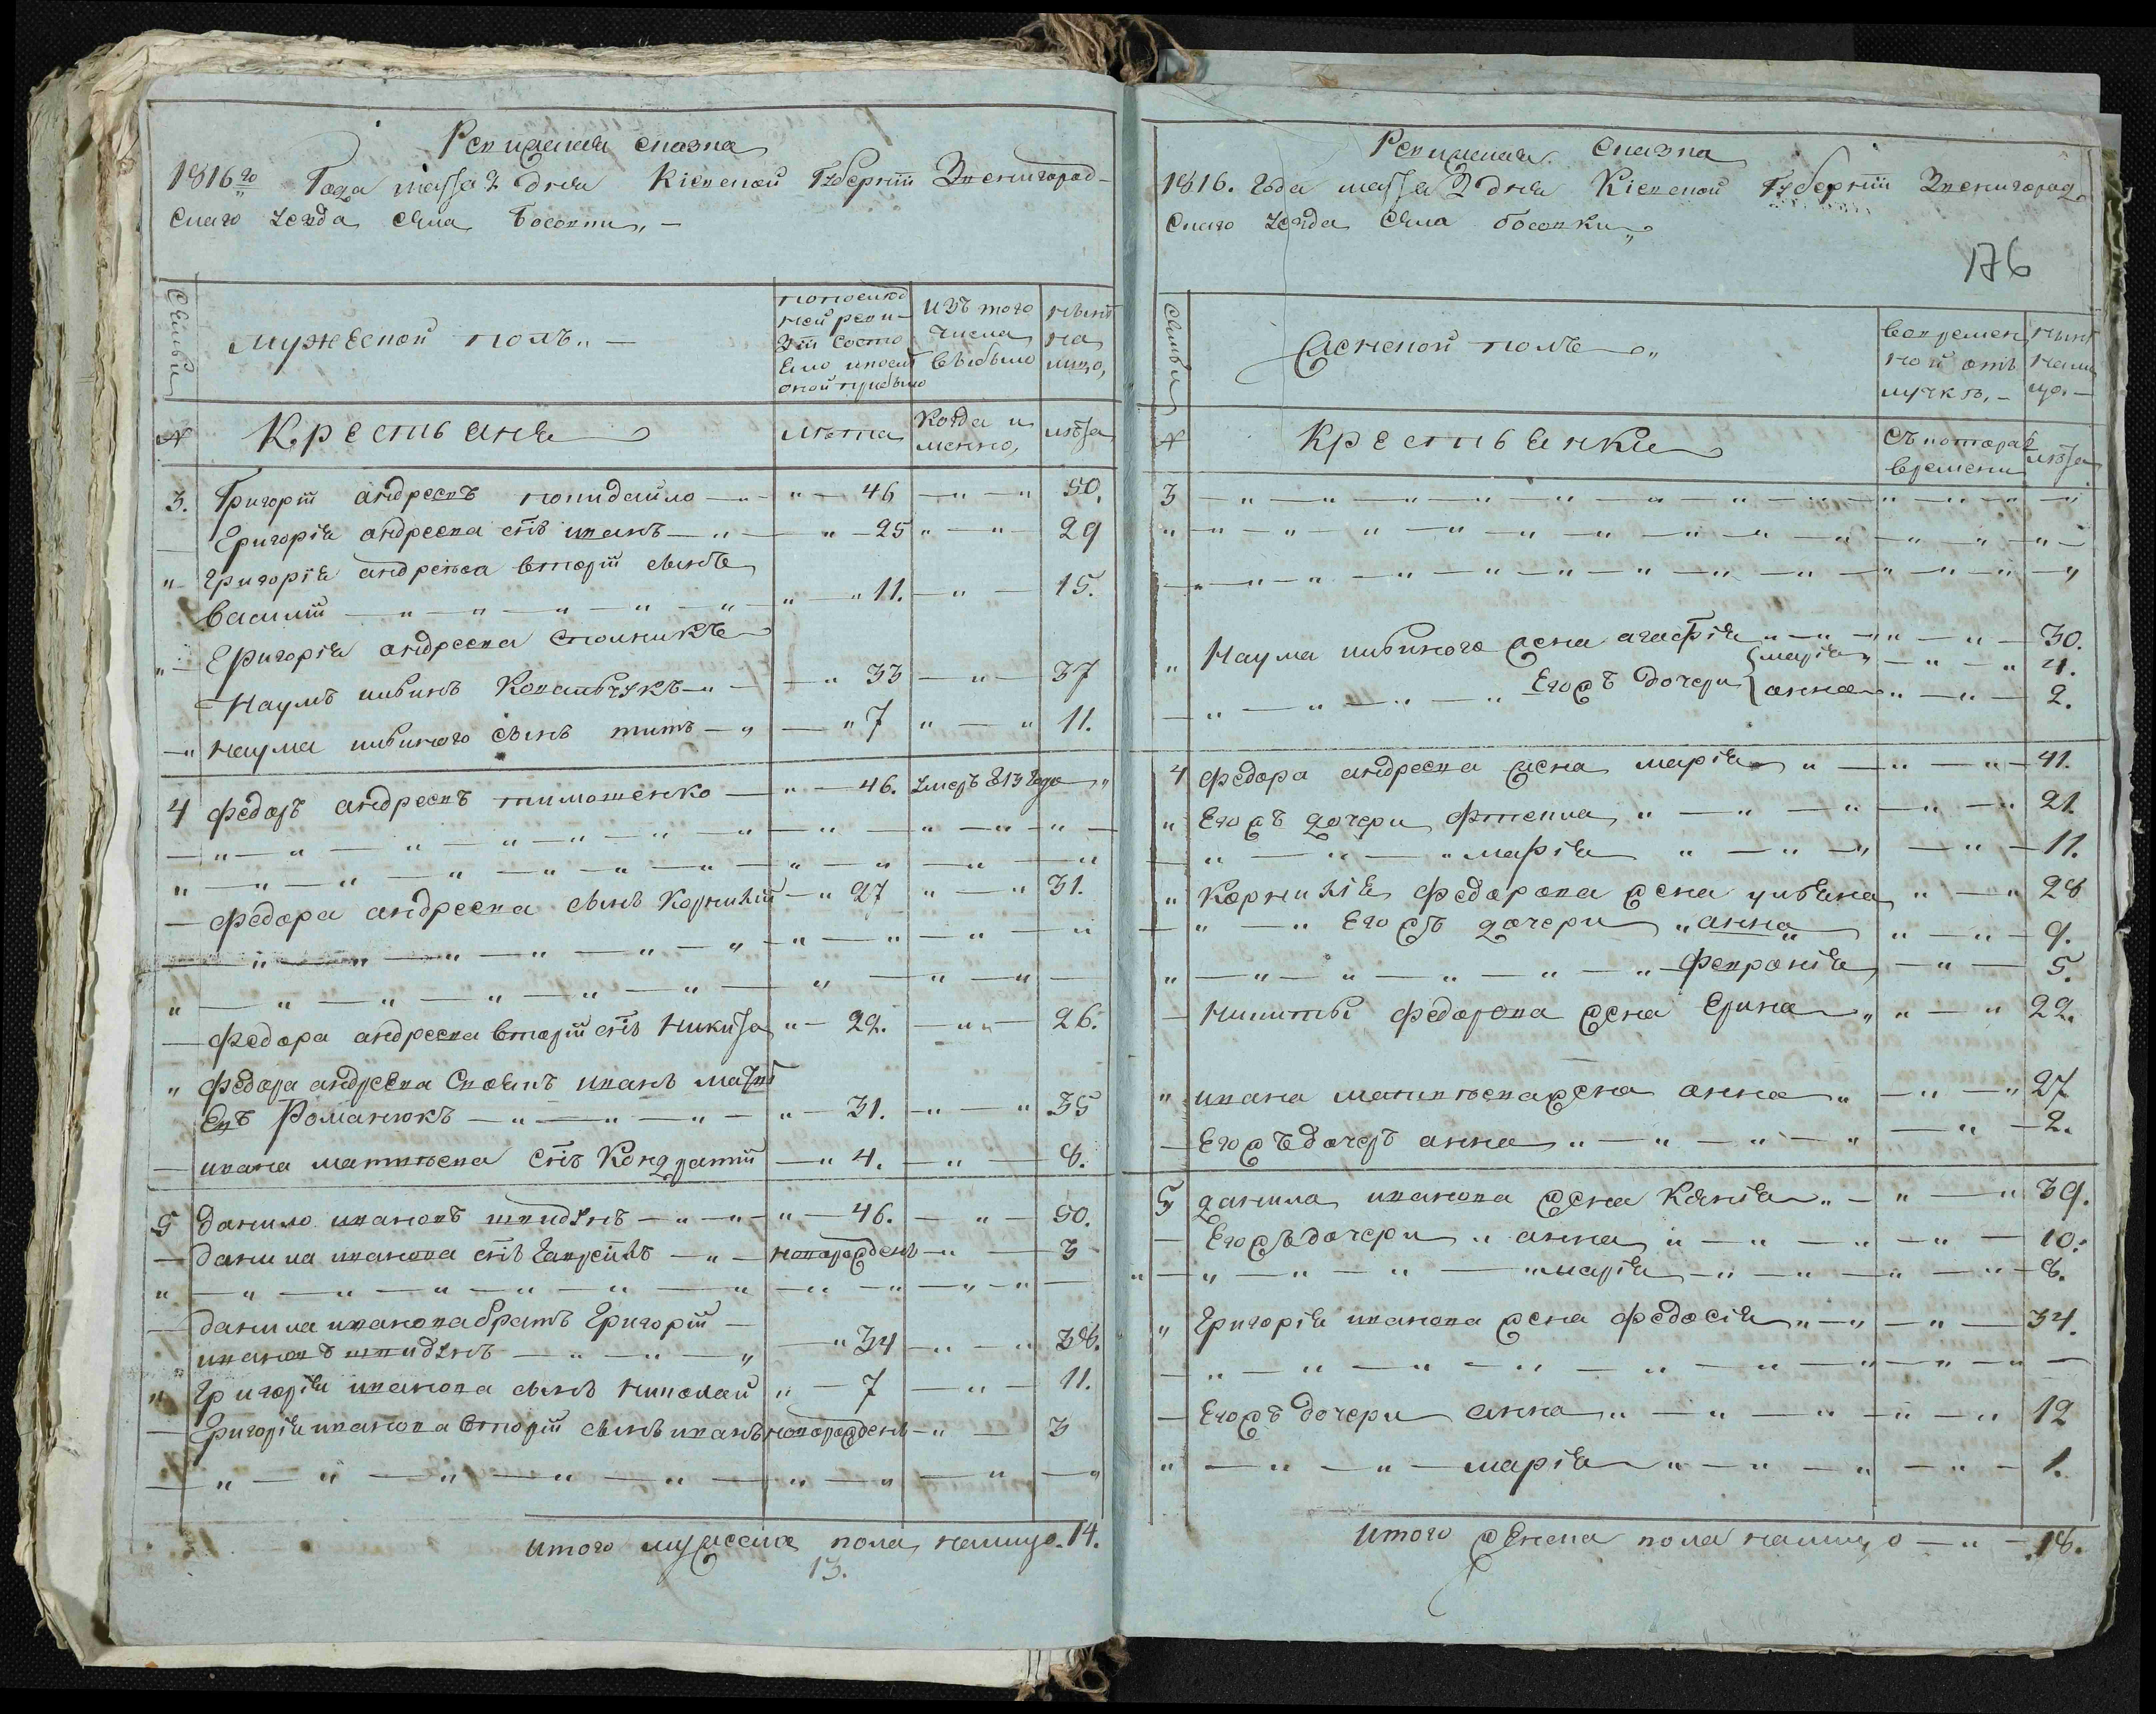 Ревизская сказка
1816го Года марта 2 дня Кіевской Губерніи Звенигород-
скаго уезда села Босовки
Семьи
мужеской полъ
по последней ревизіи состояло и после оной прибыло
Изъ того числа выбыло
ныне на лицо,
№
Крестьяне
лета
Когда именно,
лета
3. Григорій андреевъ 46 50.
Григорія андреева снъ иванъ 25 29
Григорія андреева вторій сынъ
василій 11. 15.
Григорія андреева
Наумъ Ковальчукъ 33 37
Наума сынъ титъ 7 11.
4 федоръ андреевъ тимошенко 46. умеръ 813 года
федора андреева сынъ Корнилій 27 31.
федора андреева вторій снъ Никита 22. 26.
федора андреева иванъ матве
евъ Романюкъ 31. 35
ивана матвеева снъ Кондратій 4. 8.
5 данило ивановъ 46. 50.
данила иванова снъ Гавріилъ новорожденъ 3
данила иванова братъ Григорій
ивановъ 34 38.
Григорія иванова сынъ николай 7 11.
Григорія иванова вторій сынъ иванъ новорожденъ 3
итого мужеска пола налицо. 14.
13.
Ревизская Сказка
1816. года марта 2 дня Кіевской Губерніи Звенигород
скаго уезда села босовки
176
Семьи
Женской полъ
во временной отлучке,
ныне налицо.
№
Крестьянки
съ котораго времени
лета
3
Наума жена агафія 30.
Его жъ дочери марія 4.
анна 2.
4 федора андреева жена марія 41.
Его жъ дочери 21
марія 11.
Корнилія федорова жена ульяна 28
Его жъ дочери анна 9.
февронія 5.
Никиты федорова жена Ерина 22.
ивана матвеева жена анна 27
Его жъ дочерь анна 2.
5 данила иванова жена Ксенія 39.
Его жъ дочери анна 10.
марія 8.
Григорія иванова жена федосія 34.
Его жъ дочери анна 12
марія 1.
Итого женска пола налицо 18.